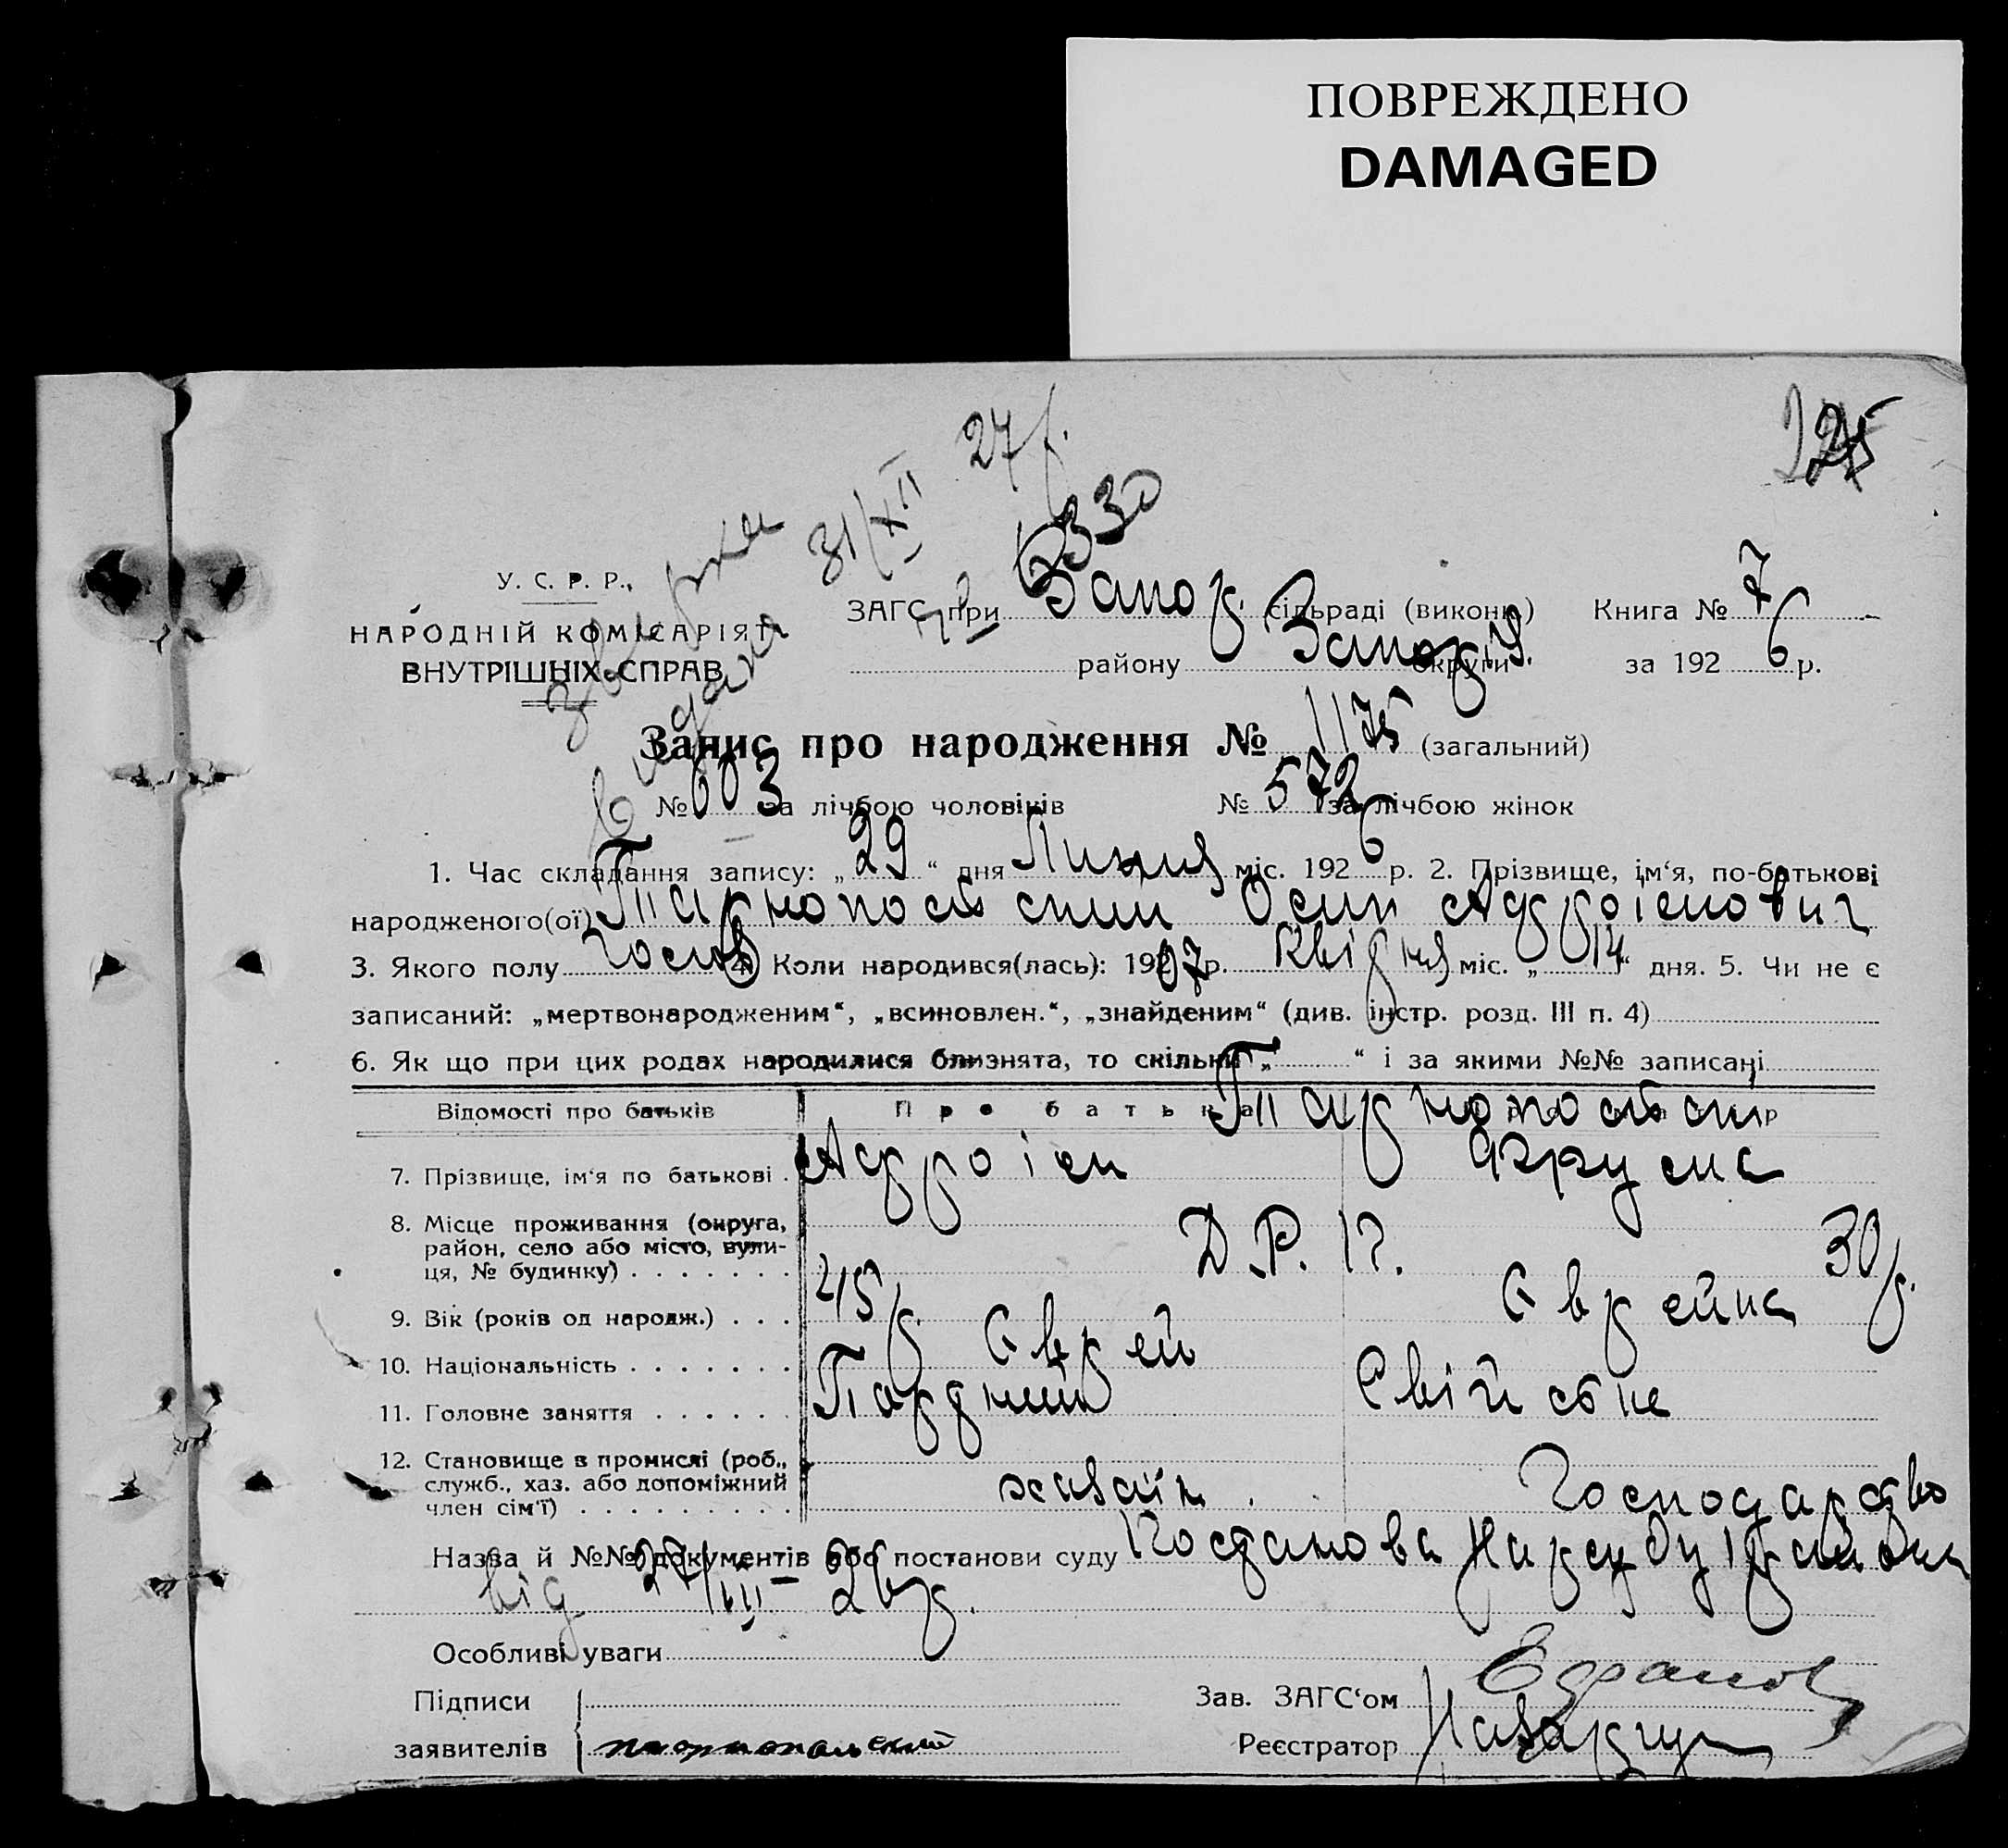 ПОВРЕЖДЕНО
DAMAGED
125
31/XII 27 р.
6330
видана
У. С. Р. Р.
НАРОДНІЙ КОМІСАРІЯТ
ВНУТРІШНІХ СПРАВ
ЗАГС при Запор. сільраді (виконк.) Книга № 7
району Запоріз. округи за 1926 р.
Запис про народження № 1175 (загальний)
№ 603 за лічбою чоловіків № 572 за лічбою жінок
1. Час складання запису: „29“ дня Липня міс. 1926 р. 2. Прізвище, ім‘я, по-батькові
народженого(ої) Тарнопольский Осип
3. Якого полу Чолов 4. Коли народився(лась): 1907 р. Квітня міс. „14“ дня. 5. Чи не є
записаний: „мертвонародженим“, „всиновлен.“, „знайденим“ (див. інстр. розд. III п. 4)
6. Як що при цих родах народилися близнята, то скільки „ “ і за якими №№ записані
Відомості про батьків Про батька Тарнопольські
7. Прізвище, ім‘я по батькові
8. Місце проживання (округа,
район, село або місто, вули-
ця, № будинку) Д. Р. 17.
9. Вік (років од народж.) 45 р. 30 р.
10. Національність Єврей Єврейка
11. Головне заняття Свійське
12. Становище в промислі (роб.,
служб., хаз. або допоміжний
член сім‘ї) хазаїн. Господарство
Назва й №№ документів або постанови суду Постанова Нарсуду 1 району
від 27/III – 26 р.
Особливі уваги
Підписи
заявителів Тарнопольский
Зав. ЗАГС‘ом
Реєстратор